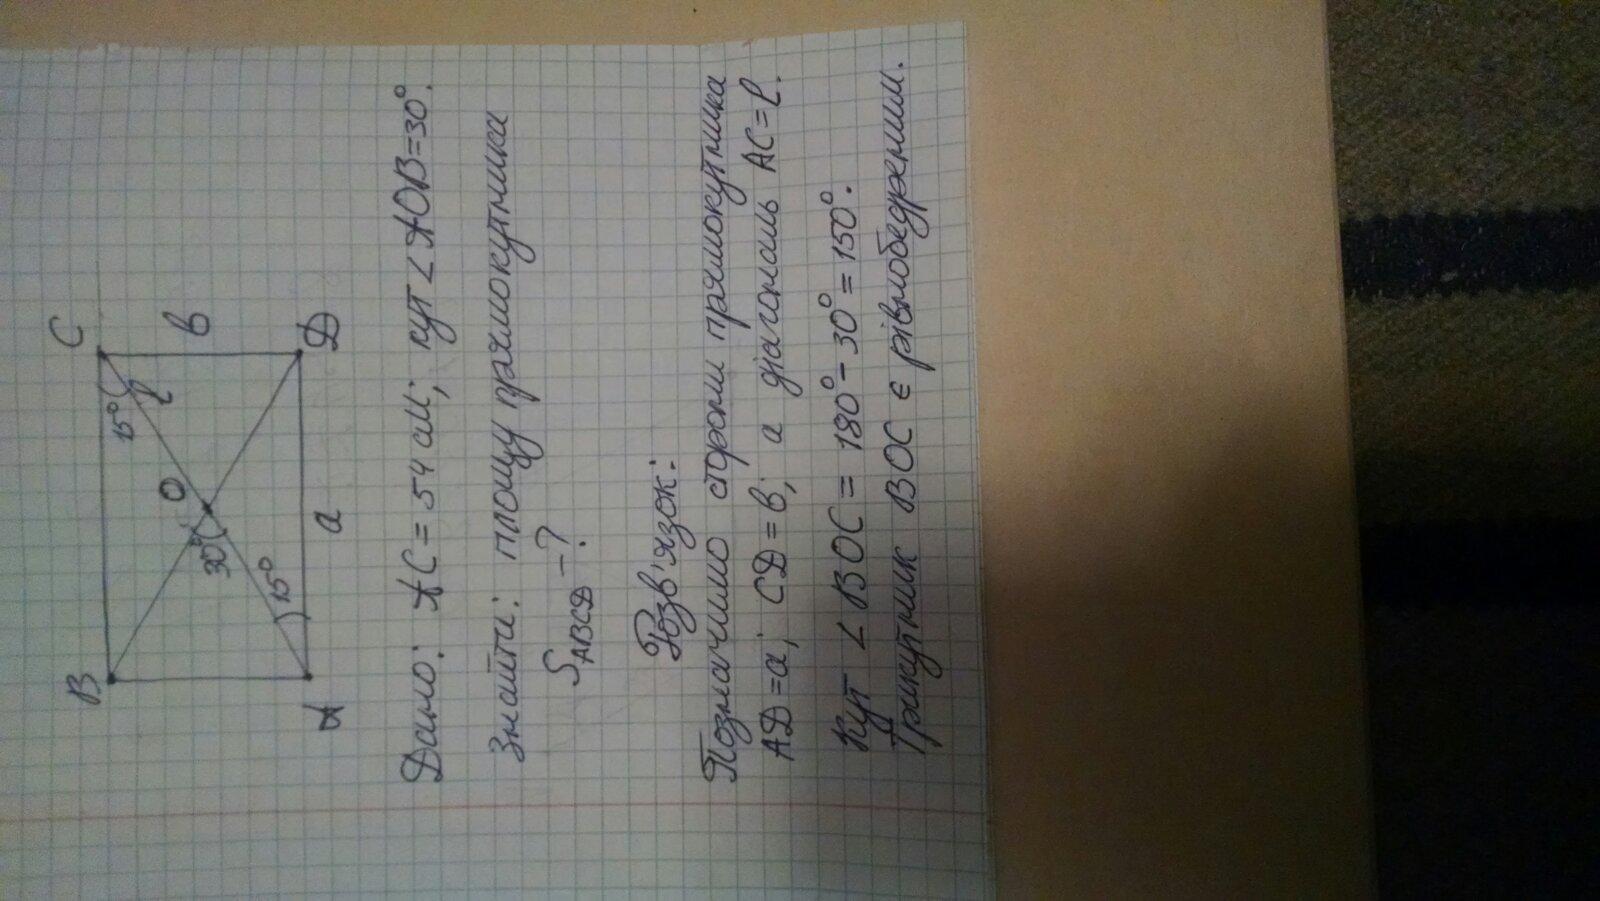 B
C
15°
l
O
30°
в
15°
A
a
D
Дано: AC = 54 см; кут ∠AOB=30°.
Знайти: площу прямокутника
S ABCD - ?
Розв'язок:
Позначимо сторони прямокутника
AD=a; CD=в; а діагональ AC=l.
Кут ∠BOC = 180°-30°=150°.
Трикутник BOC є рівнобедреним.